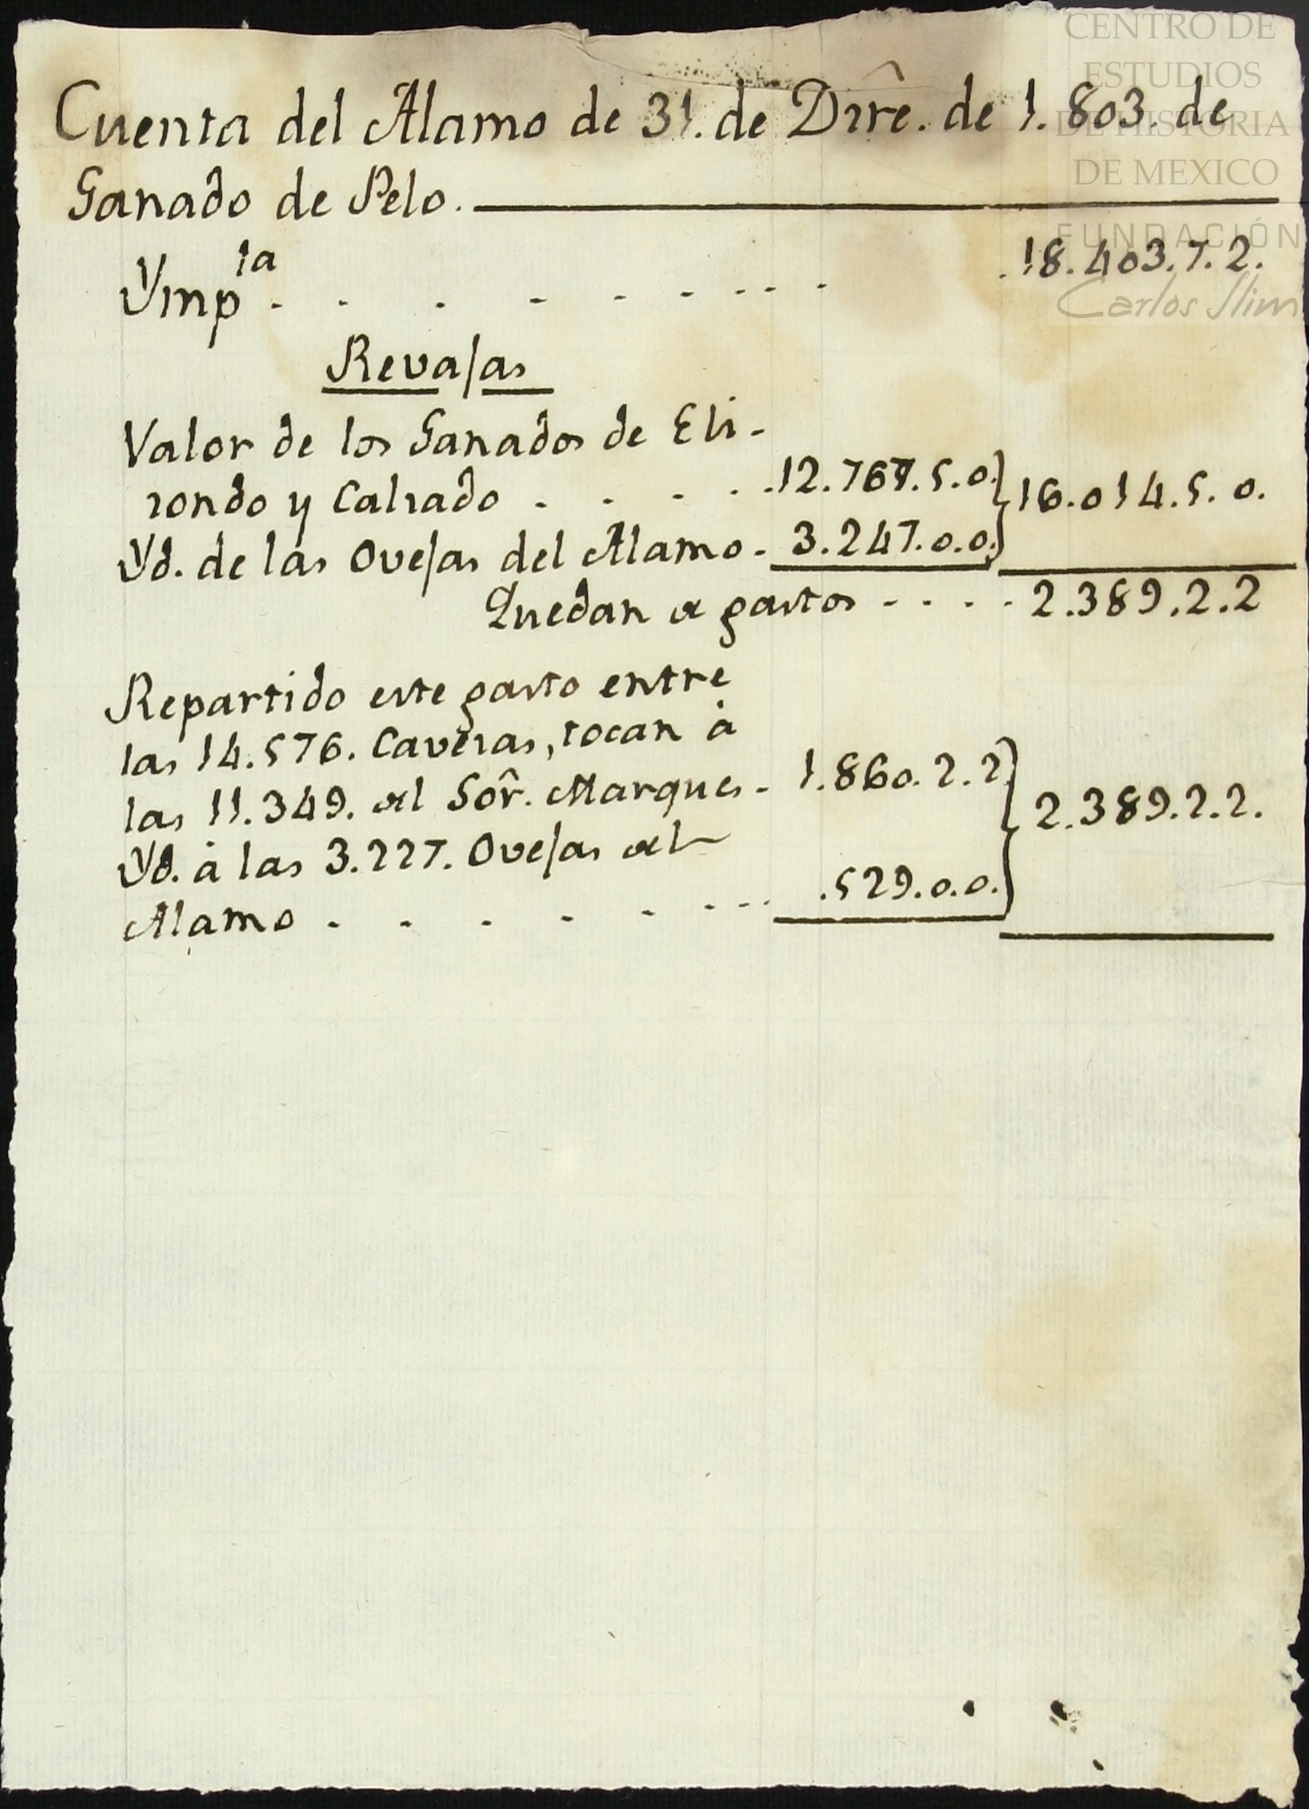 CENTRO DE
ESTUDIOS
DE HISTORIA
DE MEXICO
FUNDACIÓN
Carlos Slim
Cuenta del Alamo de 31. de Dire. de 1.803. de
Ganado de Pelo.
Ymp.ta . . . . . . . . . 18.403.7.2.
Revajas
Valor de los Ganados de Eli-
zondo y Calzado . . . . . 12.767.5.0. 16.014.5.0.
Yd. de las Ovejas del Alamo - 3.247.0.0.
Quedan a gastos - . . . 2.389.2.2
Repartido este gasto entre
las 14.576. Cavezas, tocan à
las 11.349. al Sôr. Marques - 1.860.2.2 2.389.2.2.
Yd. à las 3.227. Ovejas al
Alamo . . . . . . . . .529.0.0.